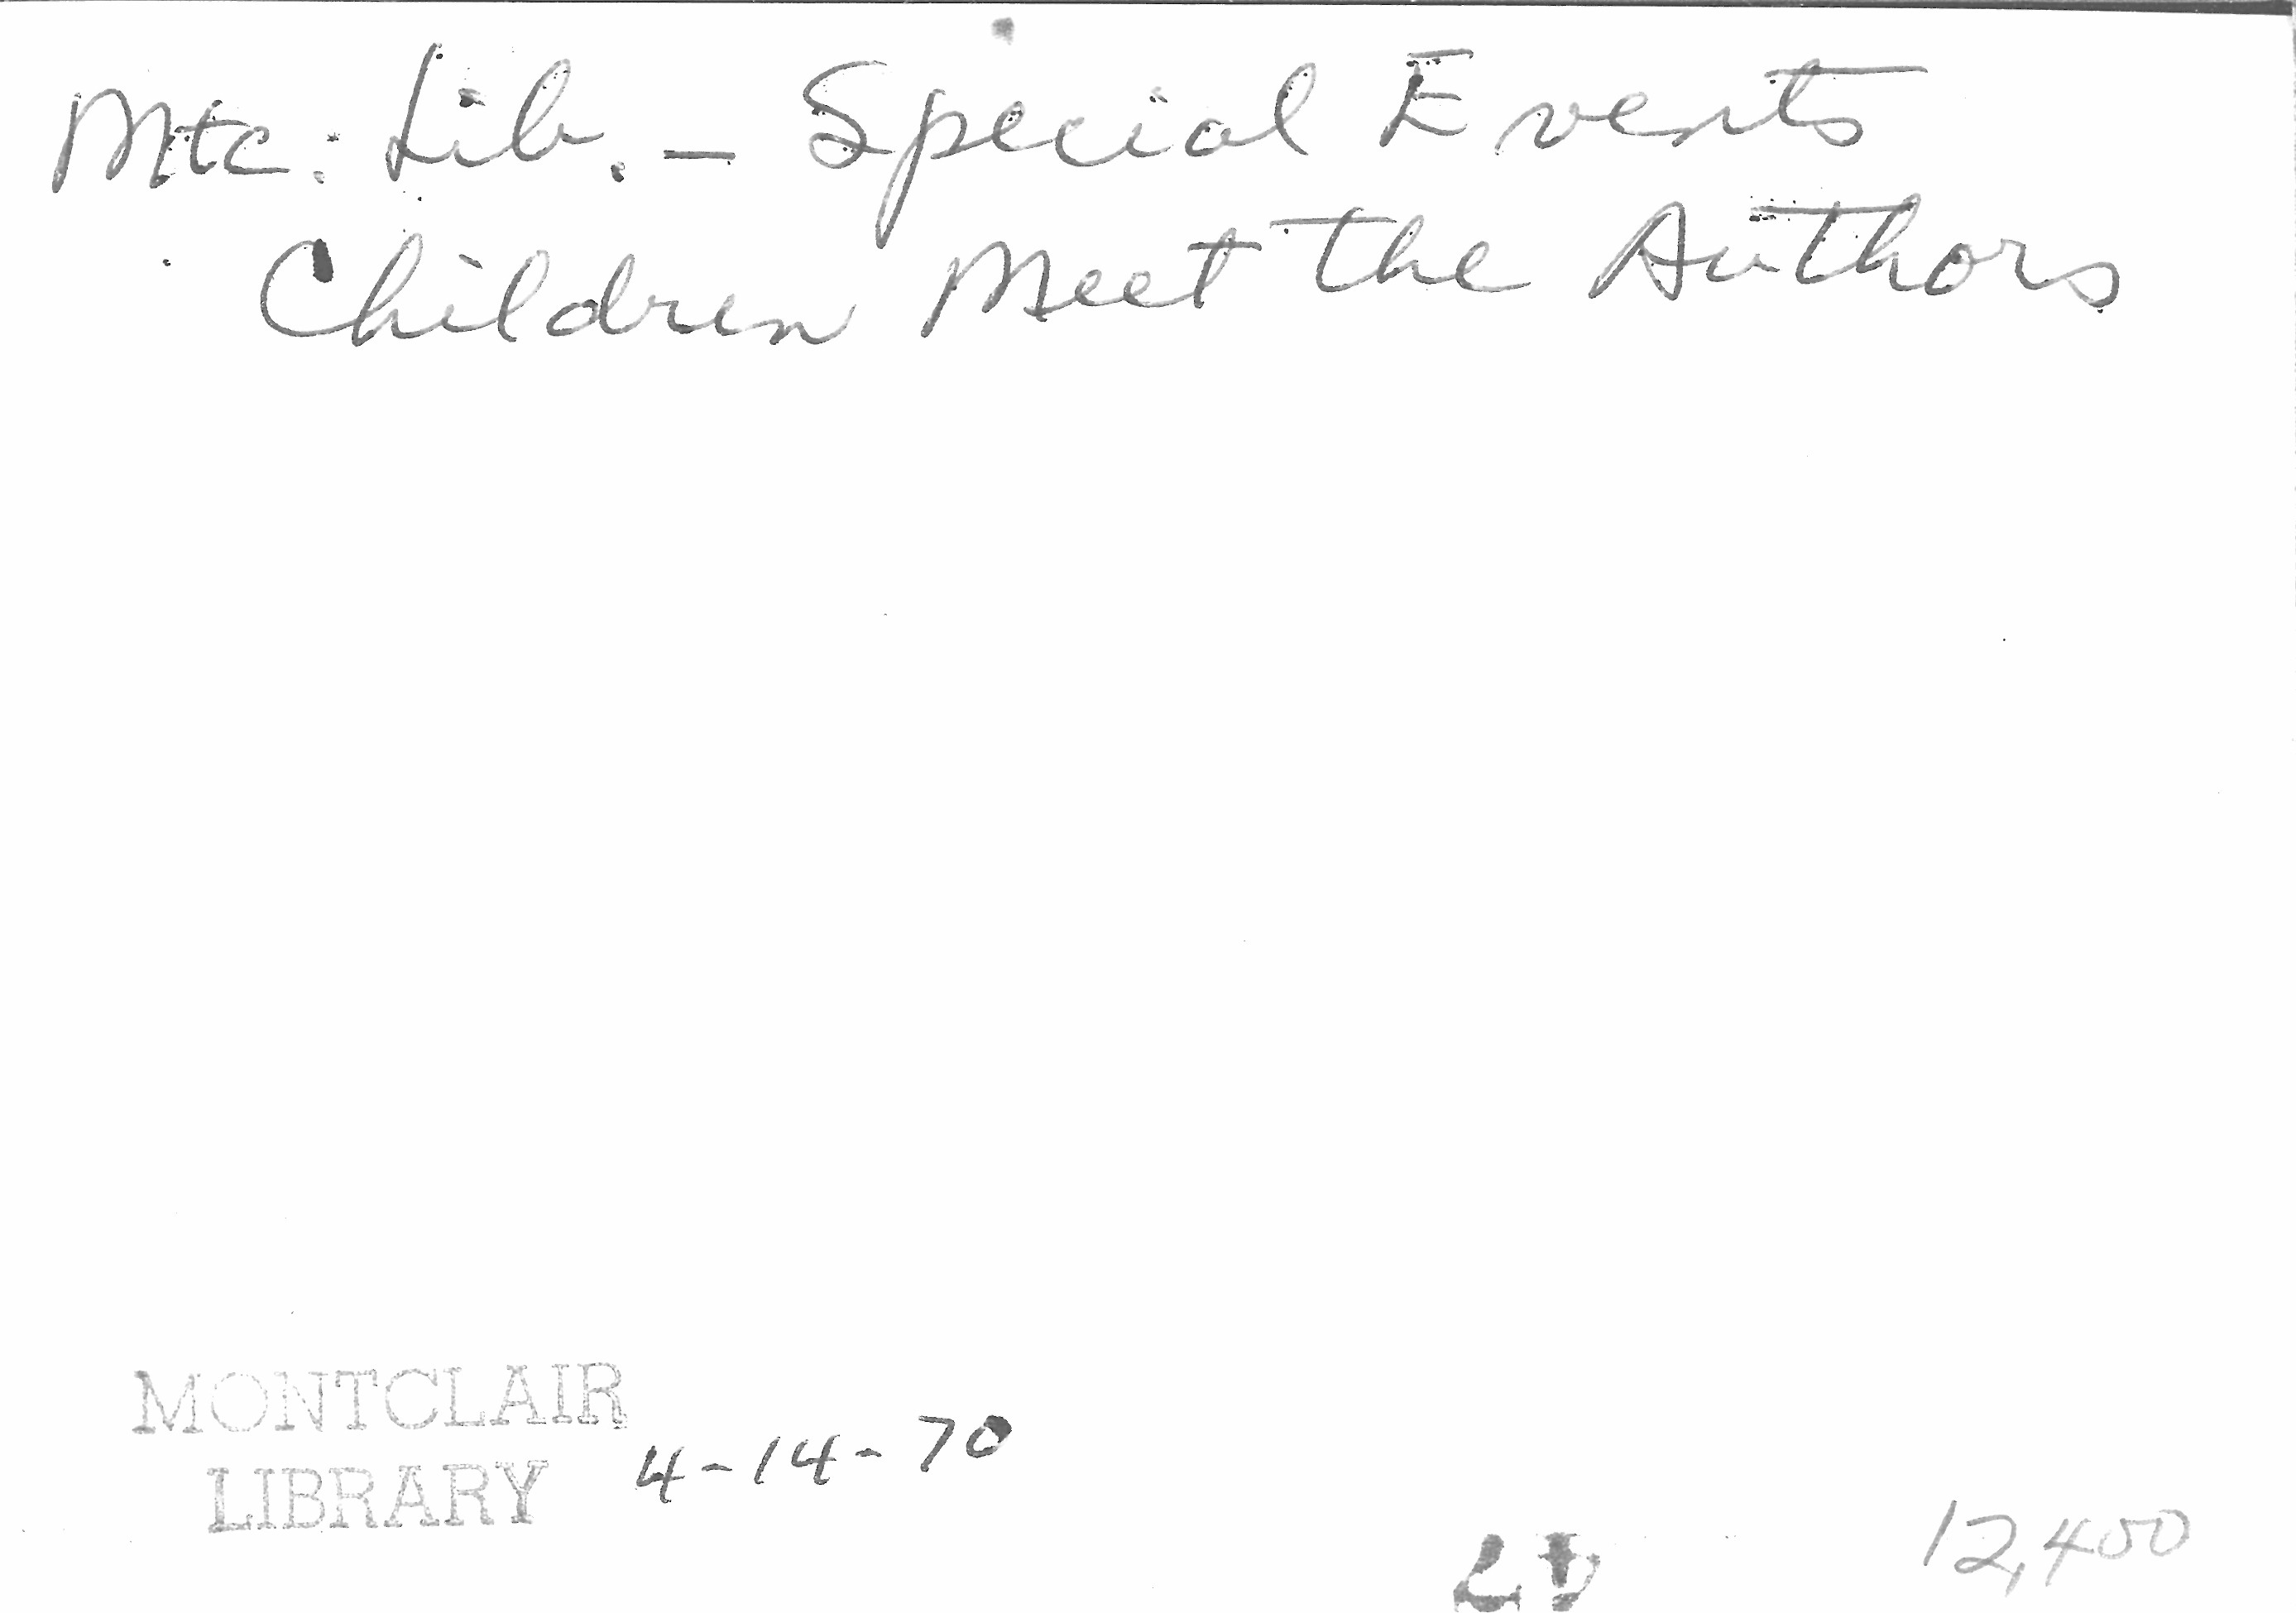 Mtc. Lib. - Special Events
Children Meet the Authors
MONTCLAIR
LIBRARY
4-14-70
12,400